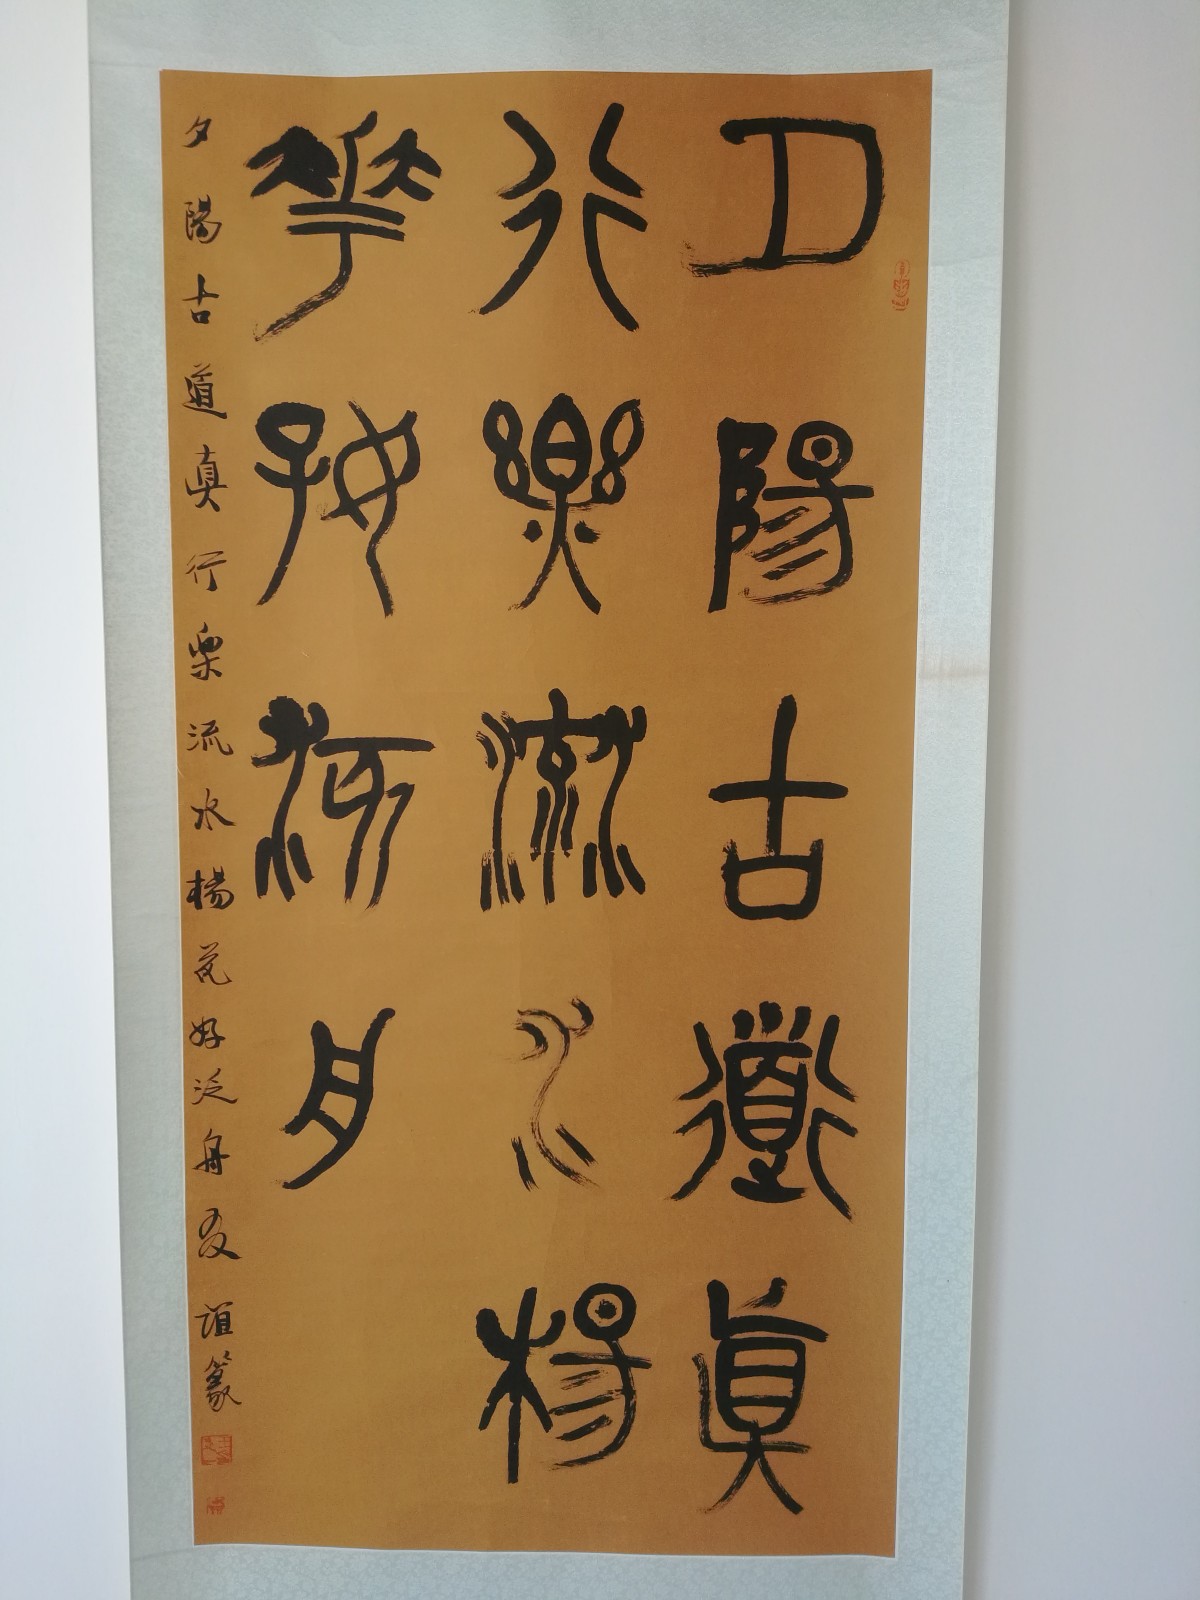 夕陽古道真
行樂流水楊
花好泛舟
夕陽古道真行樂流水楊花好泛舟 友誼篆